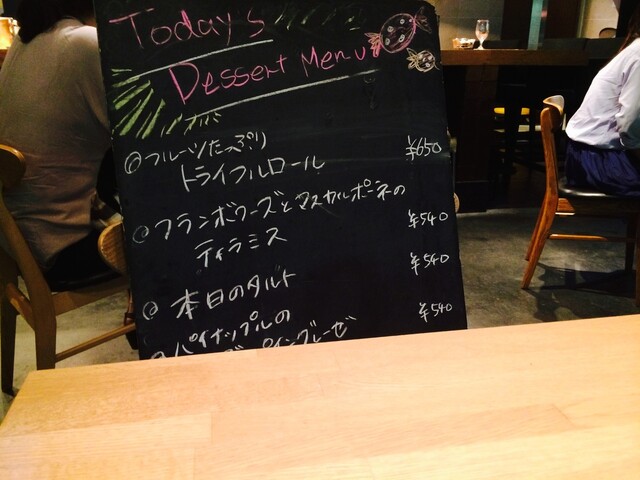 Today's
Dessert Menu
◎フルーツたっぷり
トライフルロール ¥650
◎フランボワーズとマスカルポーネの
ティラミス ¥540
◎本日のタルト ¥540
◎パイナップルの ¥540